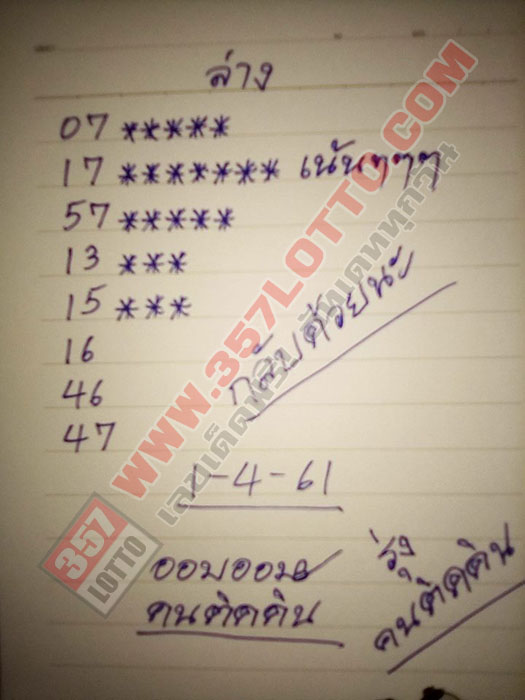 ล่าง
07 *****
17 ******* เน้นๆๆๆ
57 *****
13 ***
15 ***
16
46
47
กลับด้วยนะ
1-4-61
ออมออม
คนติดดิน
รุ่ง
คนติดดิน
WWW.357LOTTO.COM
เลขเด็ดฟรี อัพเดททุกวัน
357
LOTTO